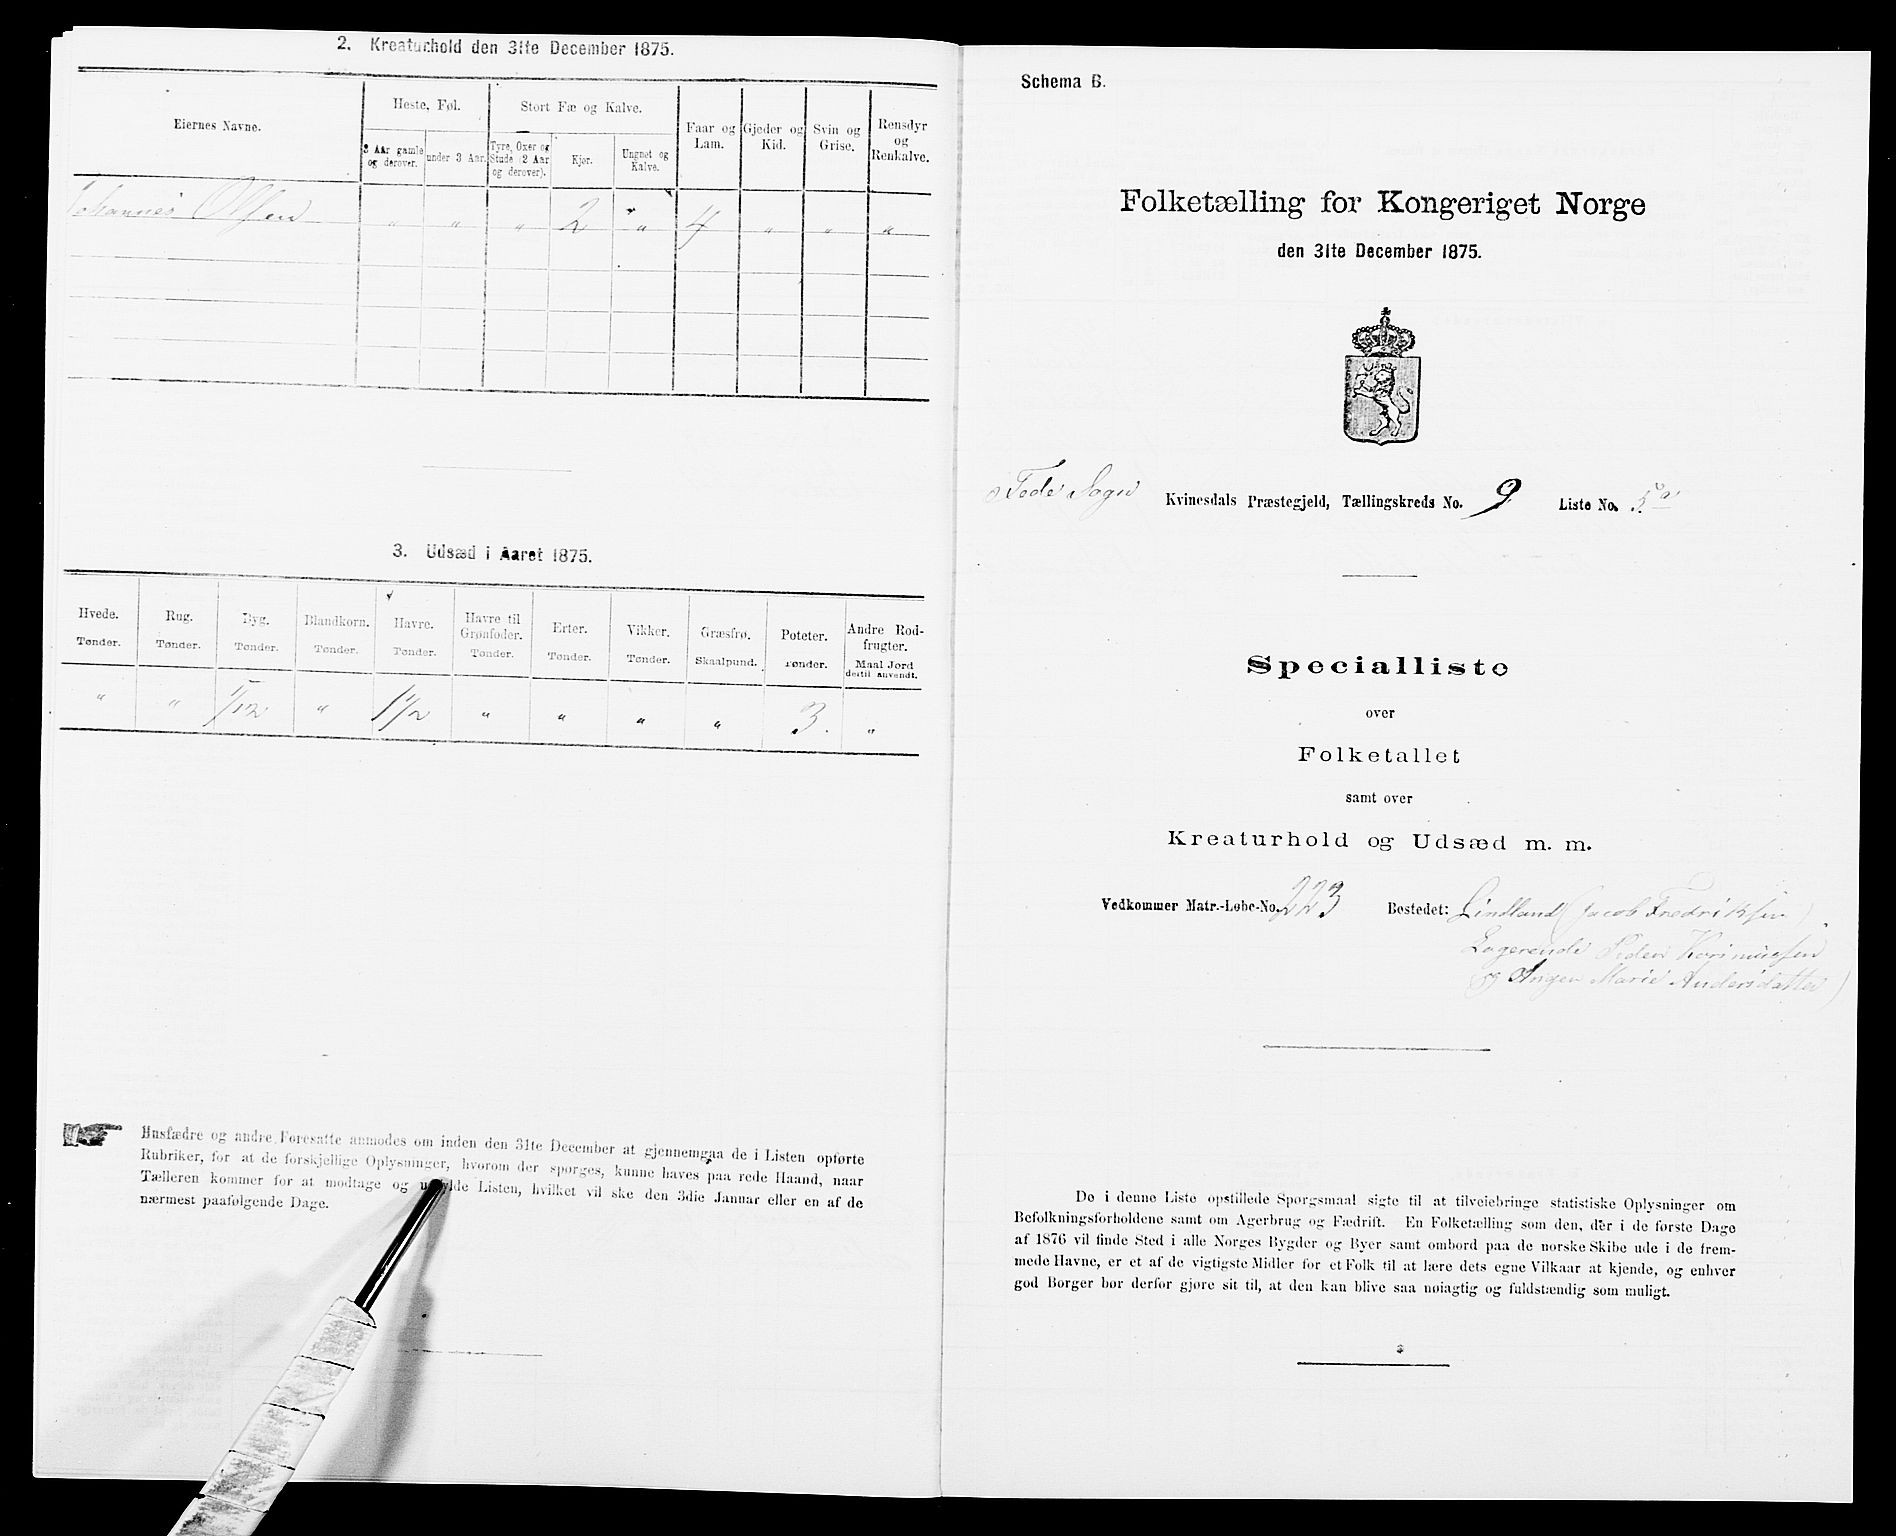 2. Kreaturhold den 31te December 1875.
Eiernes Navne.
Heste, Føl.
Stort Fæ og Kalve.
3 Aar gamle og derover.
under 3 Aar.
Tyre, Oxer og Stude (2 Aar og derover).
Kjør.
Ungnet og Kalve.
Faar og Lam.
Gjeder og Kid.
Svin og Grise.
Rensdyr og Renkalve.
Johannes Olsen " " " 2 " 4 " " "
3. Udsæd i Aaret 1875.
Hvede. Rug. Byg. Blandkorn. Havre. Havre til Grønfoder. Erter. Vikker. Græsfrø. Poteter. Andre Rodfrugter.
Tønder. Tønder. Tønder. Tønder. Tønder. Tønder. Tønder. Tønder. Skaalpund. Tønder. Maal Jord dertil anvendt.
" " 1/12 " 1 1/2 " " " " 3. "
Husfædre og andre Foresatte anmodes om inden den 31te December at gjennemgaa de i Listen opførte
Rubriker, for at de forskjellige Oplysninger, hvorom der spørges, kunne haves paa rede Haand, naar
Tælleren kommer for at modtage og udfylde Listen, hvilket vil ske den 3die Januar eller en af de
nærmest paafølgende Dage.
Schema B.
Folketælling for Kongeriget Norge
den 31te December 1875.
Fede Sogn Kvinesdals Præstegjeld, Tællingskreds No. 9 Liste No. 5a
Specialliste
over
Folketallet
samt over
Kreaturhold og Udsæd m. m.
Vedkommer Matr.-Løbe-No. 223 Bostedet: Lindland (Jacob Fredriksen)
Logerende Peder
og Inger Marie Andersdatter)
De i denne Liste opstillede Spørgsmaal sigte til at tilveiebringe statistiske Oplysninger om
Befolkningsforholdene samt om Agerbrug og Fædrift. En Folketælling som den, der i de første Dage
af 1876 vil finde Sted i alle Norges Bygder og Byer samt ombord paa de norske Skibe ude i de frem-
mede Havne, er et af de vigtigste Midler for et Folk til at lære dets egne Vilkaar at kjende, og enhver
god Borger bør derfor gjøre sit til, at den kan blive saa nøiagtig og fuldstændig som muligt.